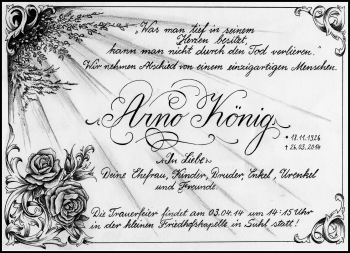 „Was man tief in seinem
Herzen besitzt,
kann man nicht durch den Tod verlieren."
Wir nehmen Abschied von einem einzigartigen Menschen
Arno König
* 18.11.1926
† 26.03.2014
„In Liebe"
Deine Ehefrau, Kinder, Bruder, Enkel, Urenkel
und Freunde
Die Trauerfeier findet am 03.04.14 um 14:15 Uhr
in der kleinen Friedhofskapelle in Suhl statt!